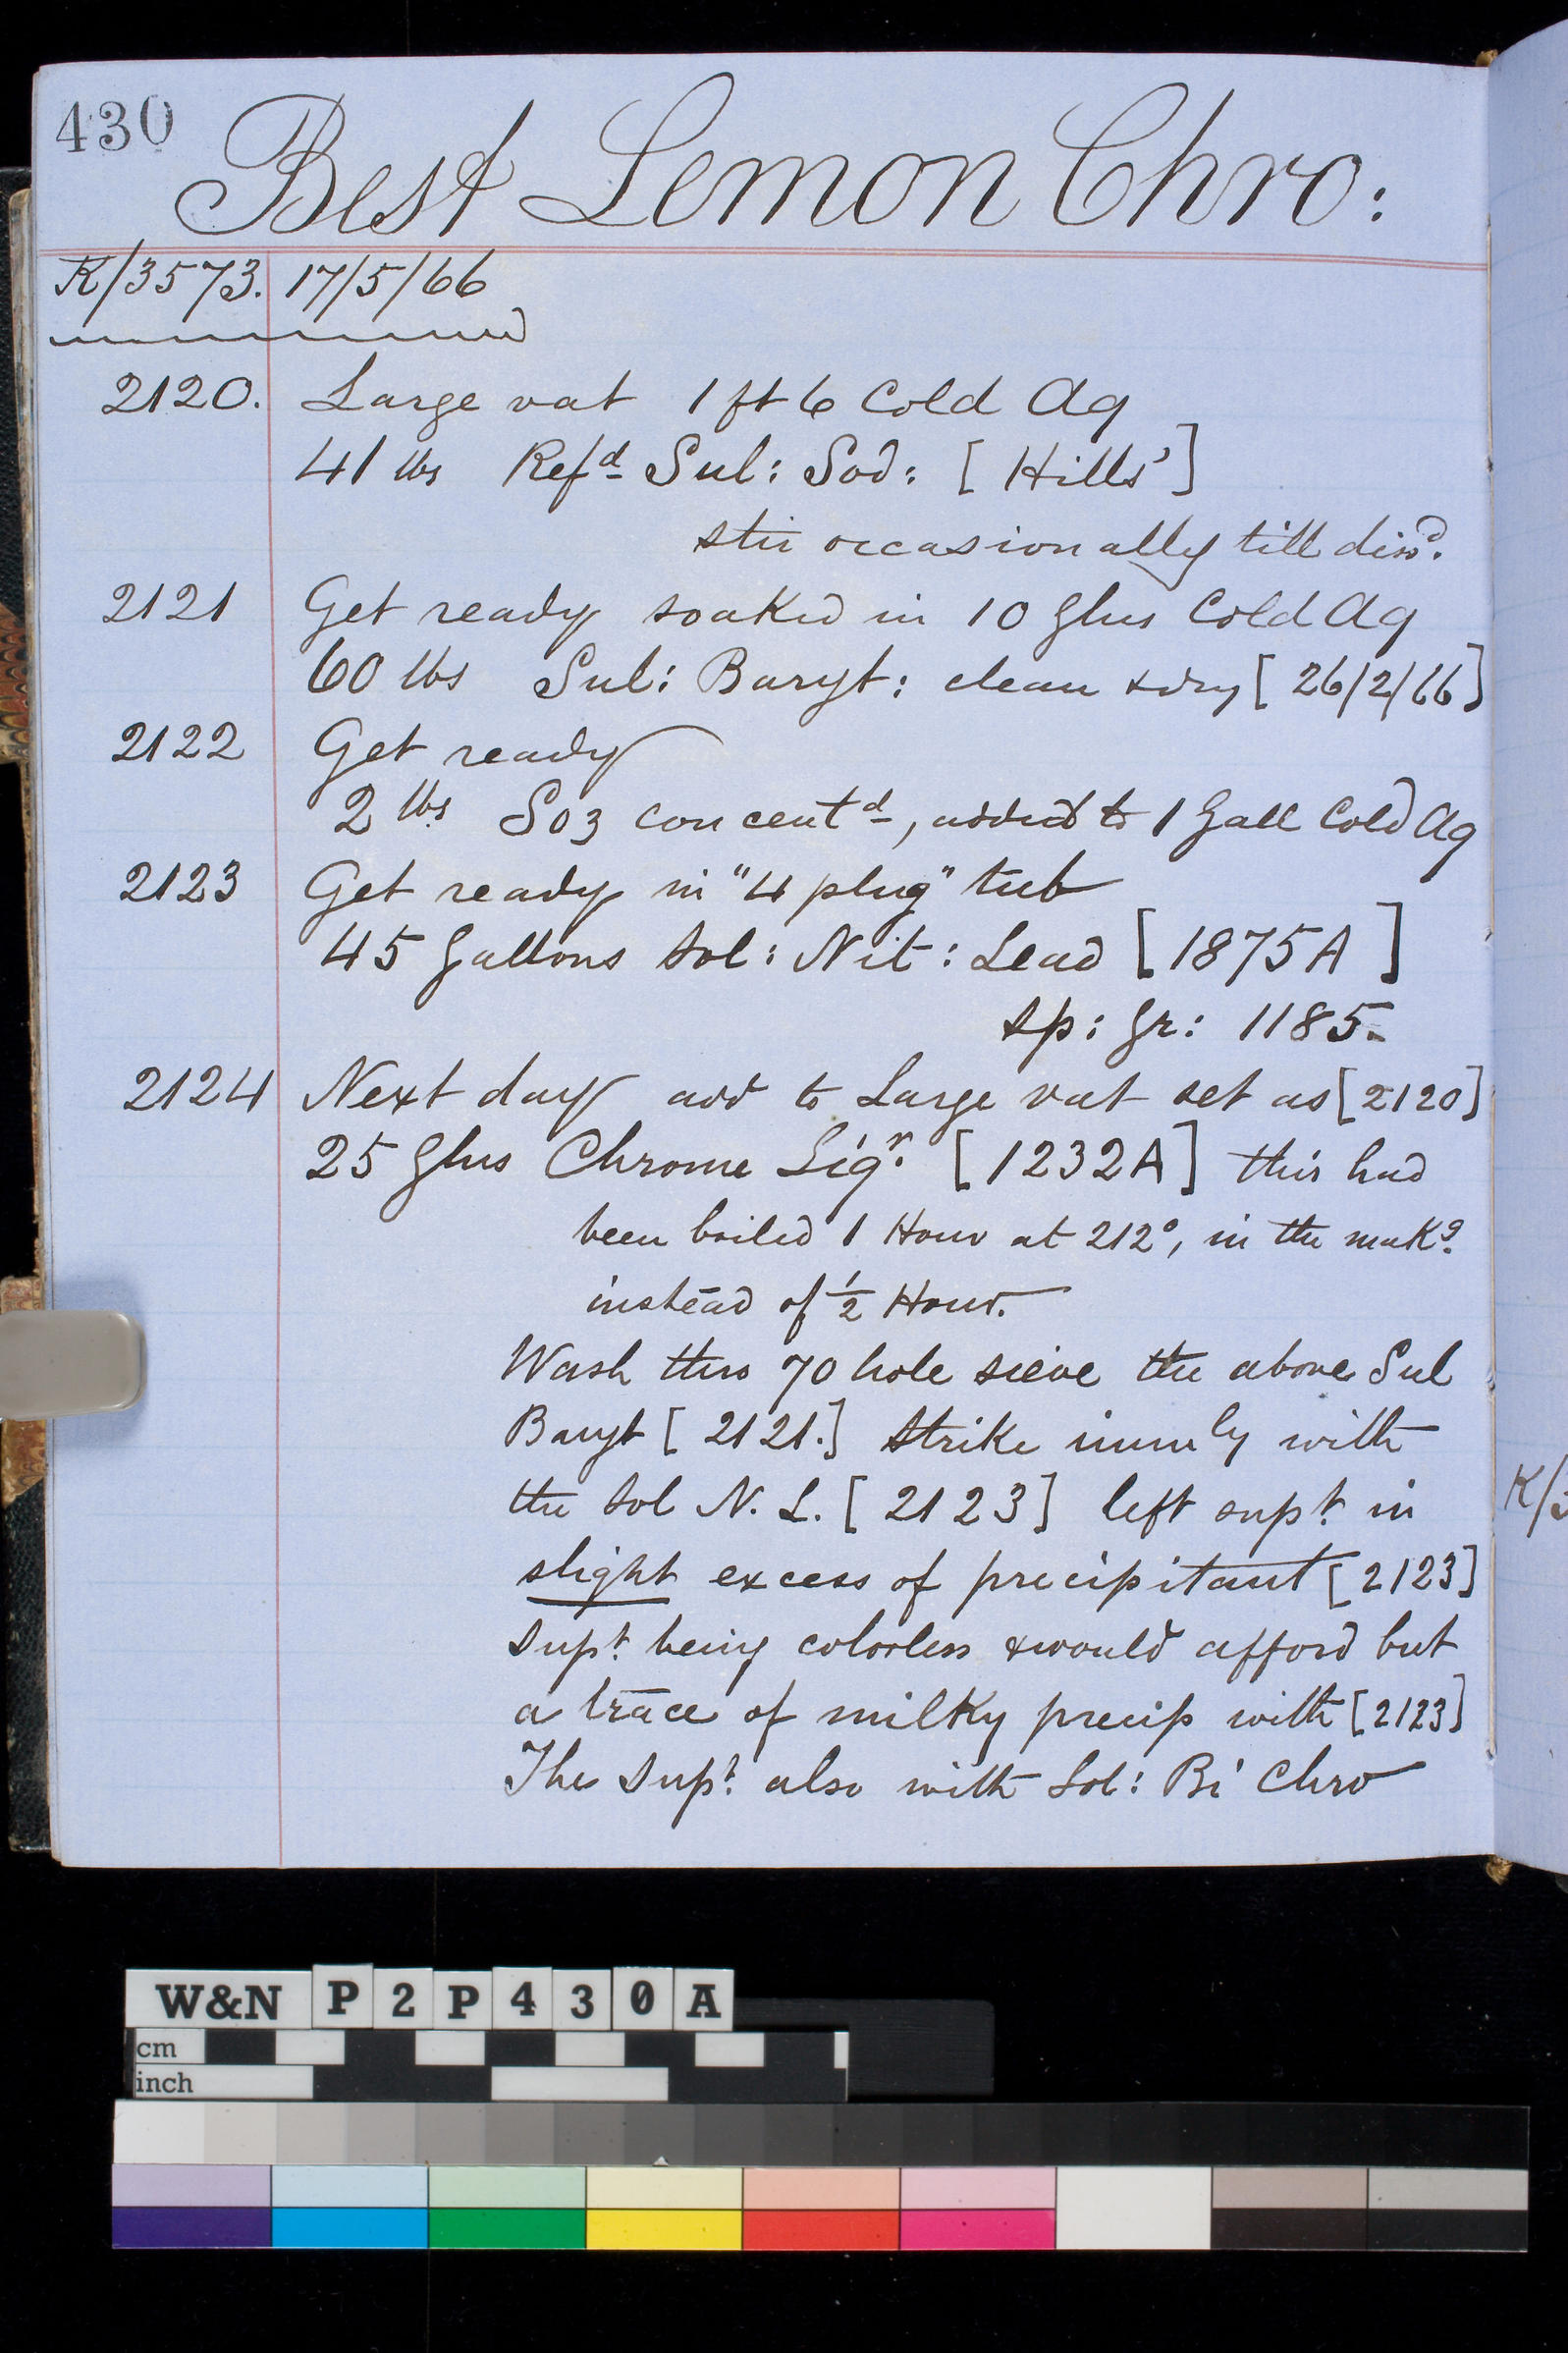 430
Best Lemon Chro:
K/3573. 17/5/66
2120. Large vat 1 ft 6 Cold Aq
41 lbs Refd Sul: Sod: [ Hills' ]
stir occasionally till dissd.
2121 Get ready soaked in 10 Glns Cold Aq
60 lbs Sul: Baryt: clean & dry [ 26/2/66 ]
2122 Get ready
2 lbs So3 concentd, added to 1 Gall Cold Aq
2123 Get ready in "4 plug" tub
45 Gallons Sol: Nit: Lead [ 1875A ]
Sp: Gr: 1185.
2124 Next day add to Large vat set as [2120]
25 Glns Chrome Liqr. [ 1232A ] this had
been boiled 1 Hour at 212°, in the makg.
instead of 1/2 Hour.
Wash thro 70 hole sieve the above Sul
Baryt [ 2121. ] Strike immly with
the Sol N. L. [ 2123 ] left supt. in
slight excess of precipitant [ 2123 ]
Supt. being colorless & would afford but
a trace of milky precip with [2123]
The Supt. also with Sol: Bi Chro
K/3
W&N P2P430A
cm
inch